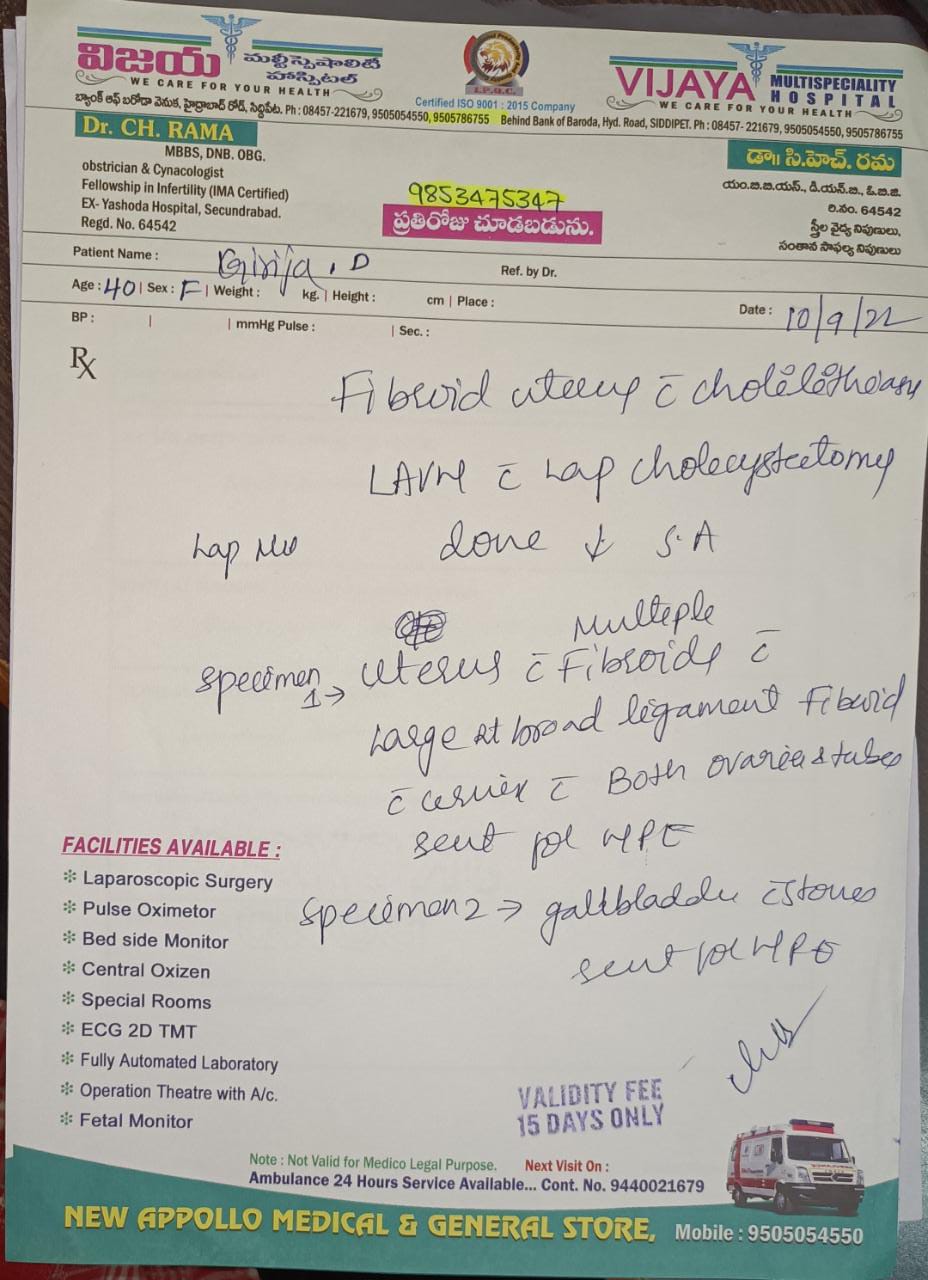 విజయ మల్టీస్పెషాలిటి హాస్పిటల్
WE CARE FOR YOUR HEALTH
బ్యాంక్ ఆఫ్ బరోడా వెనుక, హైద్రాబాద్ రోడ్, సిద్దిపేట. Ph : 08457-221679, 9505054550, 9505786755
I.P.Q.C.
Certified ISO 9001 : 2015 Company
VIJAYA MULTISPECIALITY HOSPITAL
WE CARE FOR YOUR HEALTH
Behind Bank of Baroda, Hyd. Road, SIDDIPET. Ph : 08457- 221679, 9505054550, 9505786755
Dr. CH. RAMA
MBBS, DNB. OBG.
obstrician & Cynacologist
Fellowship in Infertility (IMA Certified)
EX- Yashoda Hospital, Secundrabad.
Regd. No. 64542
9853475347
ప్రతిరోజు చూడబడును.
డా॥ సి.హెచ్. రమ
యం.బి.బి.యస్., డి.యన్.బి., ఓ.బి.జి.
రి.నం. 64542
స్త్రీల వైద్య నిపుణులు,
సంతాన సాఫల్య నిపుణులు
Patient Name : Girija, D Ref. by Dr.
Age : 40 | Sex : F | Weight : kg. | Height : cm | Place : Date : 10/9/22
BP : | | mmHg Pulse : | Sec. :
Rx
Fibroid uterus c̄
LAVH c̄ Lap cholecystectomy
Lap done S.A
Multiple
specimen 1→ uterus c̄ Fibroids c̄
Large Rt broad ligament Fibroid
c̄ cervix c̄ Both ovaries & tubes
sent for HPE
specimen 2 → gallbladder c̄ stones
sent for HPE
FACILITIES AVAILABLE :
❇ Laparoscopic Surgery
❇ Pulse Oximetor
❇ Bed side Monitor
❇ Central Oxizen
❇ Special Rooms
❇ ECG 2D TMT
❇ Fully Automated Laboratory
❇ Operation Theatre with A/c.
❇ Fetal Monitor
VALIDITY FEE
15 DAYS ONLY
Note : Not Valid for Medico Legal Purpose. Next Visit On :
Ambulance 24 Hours Service Available... Cont. No. 9440021679
NEW APPOLLO MEDICAL & GENERAL STORE, Mobile : 9505054550